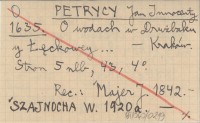 O PETRYCY Jan Innocenty
1635. O wodach w Drużbaku
y Łęckowey... — Kraków.
Stron 5 nlb, 45, 4°.
Rec.: Majer J. 1842. —
"SZAJNOCHA W. 1920a. —